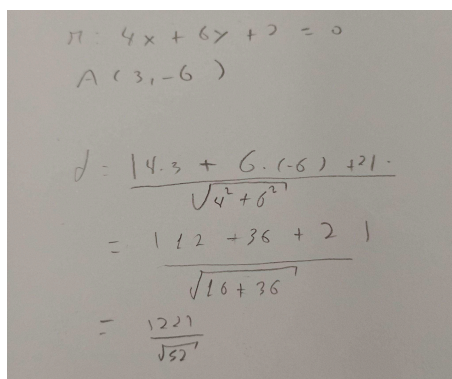 r: 4x + 6y + 2 = 0
A (3, -6)
d = |4.3 + 6.(-6) + 2|.
√4² + 6²
= |12 - 36 + 2|
√16 + 36
= |22|
√52